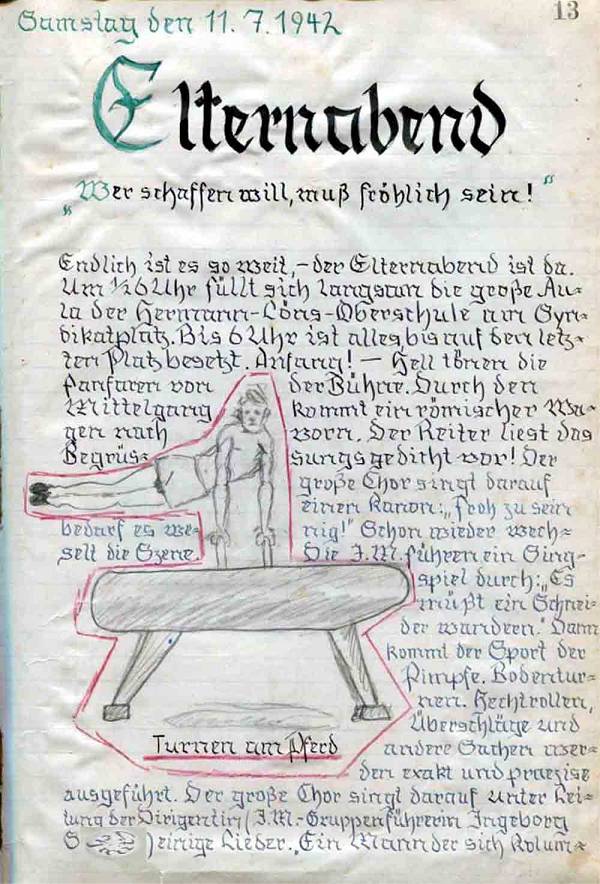 Samstag den 11.7.1942
13
Elternabend
„Wer schaffen will, muß fröhlich sein!“
Endlich ist es so weit,- der Elternabend ist da.
Um ½6 Uhr füllt sich langsam die große Au=
la der Hermann-Löns-Oberschule am Syn=
dikatplatz. Bis 6 Uhr ist alles bis auf den letz=
ten Platz besetzt. Anfang! — Hell tönen die
Fanfaren von der Bühne. Durch den
Mittelgang kommt ein römischer Wa=
gen nach vorn. Der Reiter liest das
Begrüs= sungsgedicht vor! Der
große Chor singt darauf
einen Kanon: „Froh zu sein
bedarf es we= nig!" Schon wieder wech=
selt die Szene. Die J.M. führen ein Sing=
spiel durch: „Es
müßt ein Schnei=
der wandern." Dann
kommt der Sport der
Pimpfe. Bodentur=
nen. Hechtrollen,
Überschläge und
Turnen am Pferd
andere Sachen wer=
den exakt und praezise
ausgeführt. Der große Chor singt darauf unter Lei=
tung der Dirigentin (J.M.-Gruppenführerin Ingeborg
S ) einige Lieder. „Ein Mann der sich Kolum=